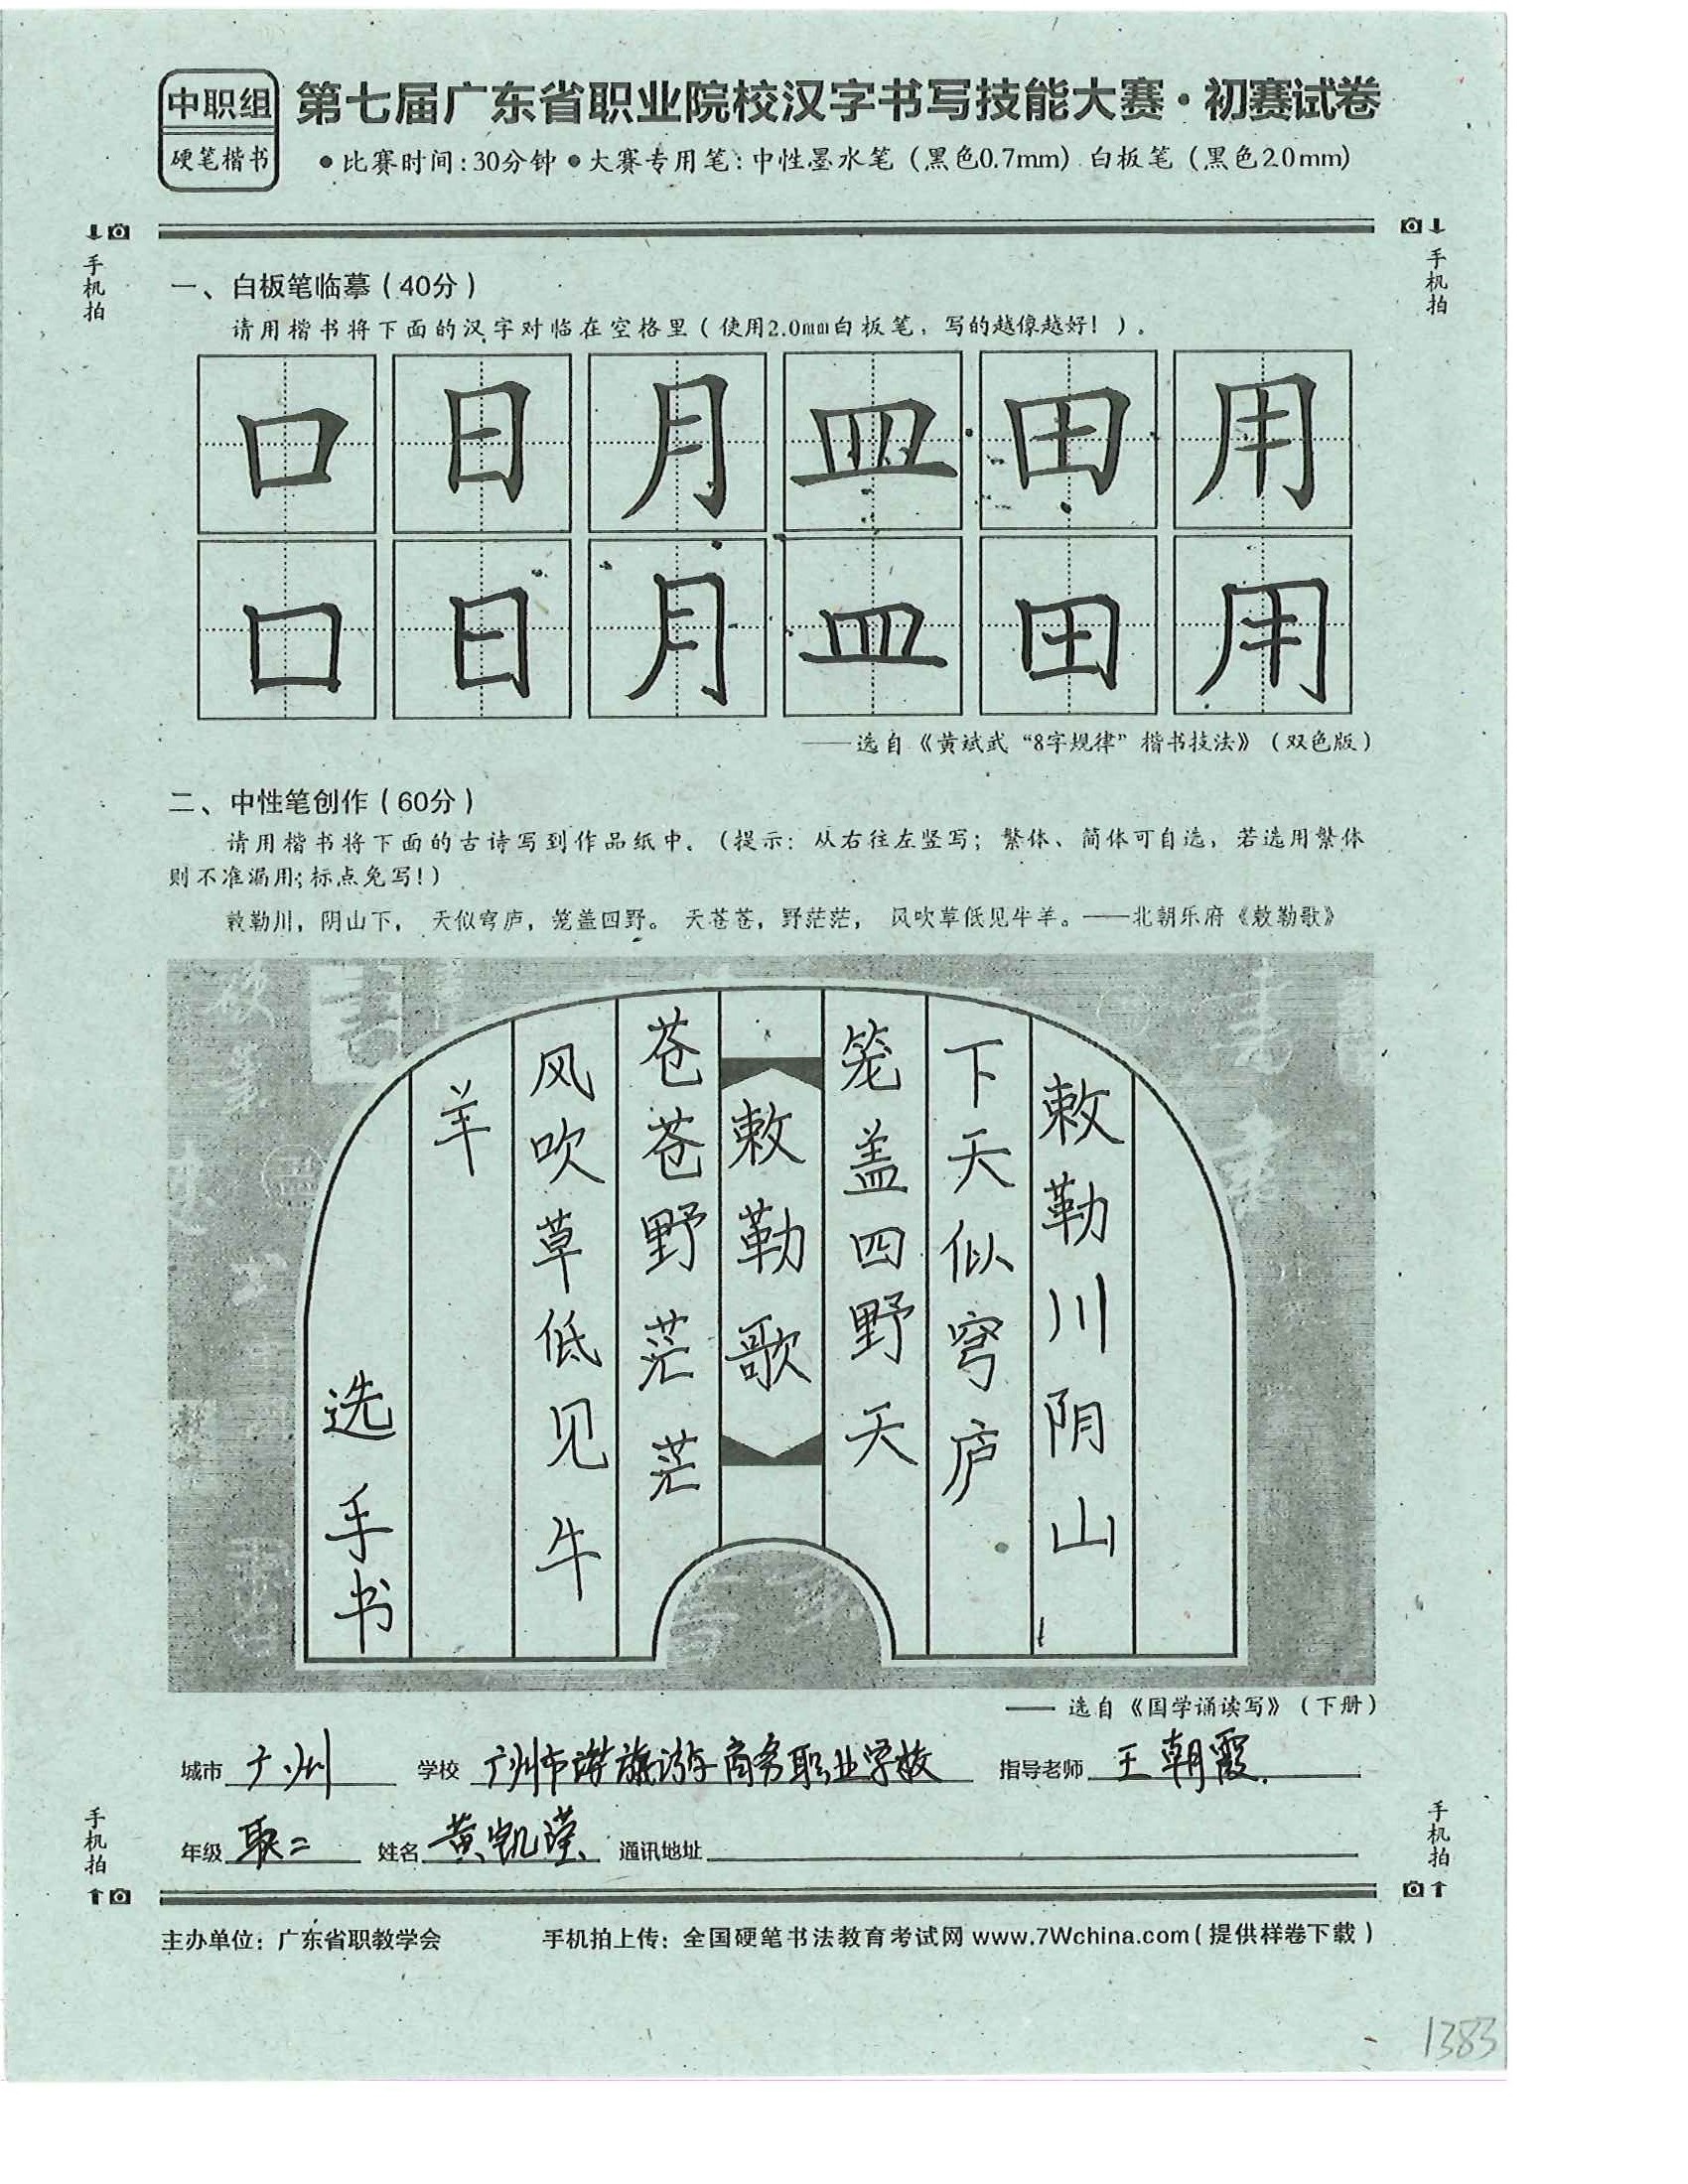 中职组
硬笔楷书
第七届广东省职业院校汉字书写技能大赛·初赛试卷
●比赛时间:30分钟●大赛专用笔:中性墨水笔（黑色0.7mm）白板笔（黑色2.0mm）
手机拍
手机拍
一、白板笔临摹（40分）
请用楷书将下面的汉字对临在空格里（使用2.0mm白板笔，写的越像越好！）.
口 日 月 皿 田 用
口 日 月 皿 田 用
——选自《黄斌武“8字规律”楷书技法》（双色版）
二、中性笔创作（60分）
请用楷书将下面的古诗写到作品纸中.（提示：从右往左竖写；繁体、简体可自选，若选用繁体
则不准漏用;标点免写!）
敕勒川，阴山下， 天似穹庐，笼盖四野。 天苍苍，野茫茫， 风吹草低见牛羊。——北朝乐府《敕勒歌》
敕勒川阴山
下天似穹庐
笼盖四野天
敕勒歌
苍苍野茫茫
风吹草低见牛
羊
选手书
—— 选自《国学诵读写》（下册）
城市 广州 学校 广州市旅游商务职业学校 指导老师 王朝霞
年级 职二 姓名 黄凯莹 通讯地址
手机拍
手机拍
主办单位：广东省职教学会 手机拍上传：全国硬笔书法教育考试网 www.7Wchina.com（提供样卷下载）
1383